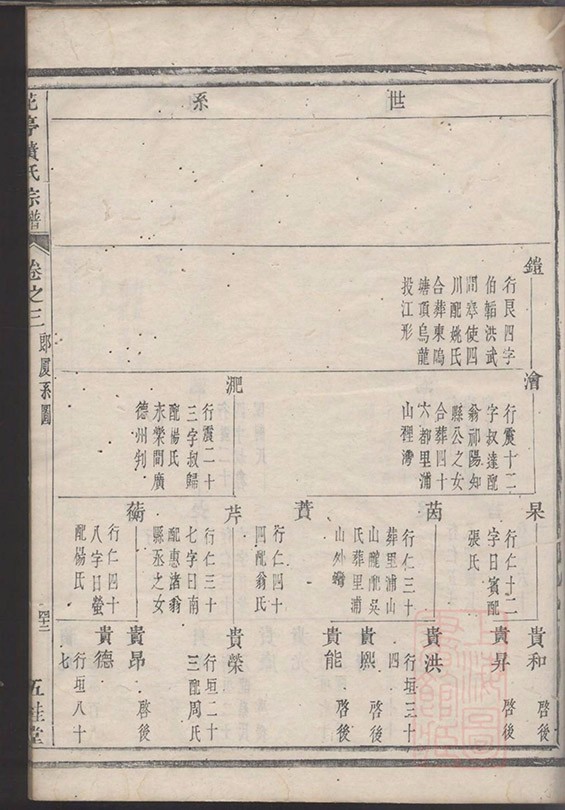 世系
鎧
行艮四字
伯韜洪武
問寧使四
川配姚氏
合葬東塢
塘項烏龍
投江形
澮
行震十二
字叔達配
翁祁陽知
縣公之女
合葬四十
六都里浦
山裡灣
淝
行震二十
三字叔歸
配楊氏
永樂間廣
德州判
杲
行仁十二
字日賓配
張氏
茵
行仁三十
葬里浦山
山配吳
氏葬里浦
山外灣
蕡
行仁四十
四配翁氏
芹
行仁三十
七字曰南
配惠渚翁
縣丞之女
蘅
行仁四十
八字日螢
配楊氏
貴和
啓後
貴昇
啓後
貴洪
行垣三十
四
貴熙
啓後
貴能
啓後
貴榮
行垣二十
三配周氏
貴昂
啓後
貴德
行垣八十
七
花亭黃氏宗譜
卷之三
郎厦系圖
五桂堂